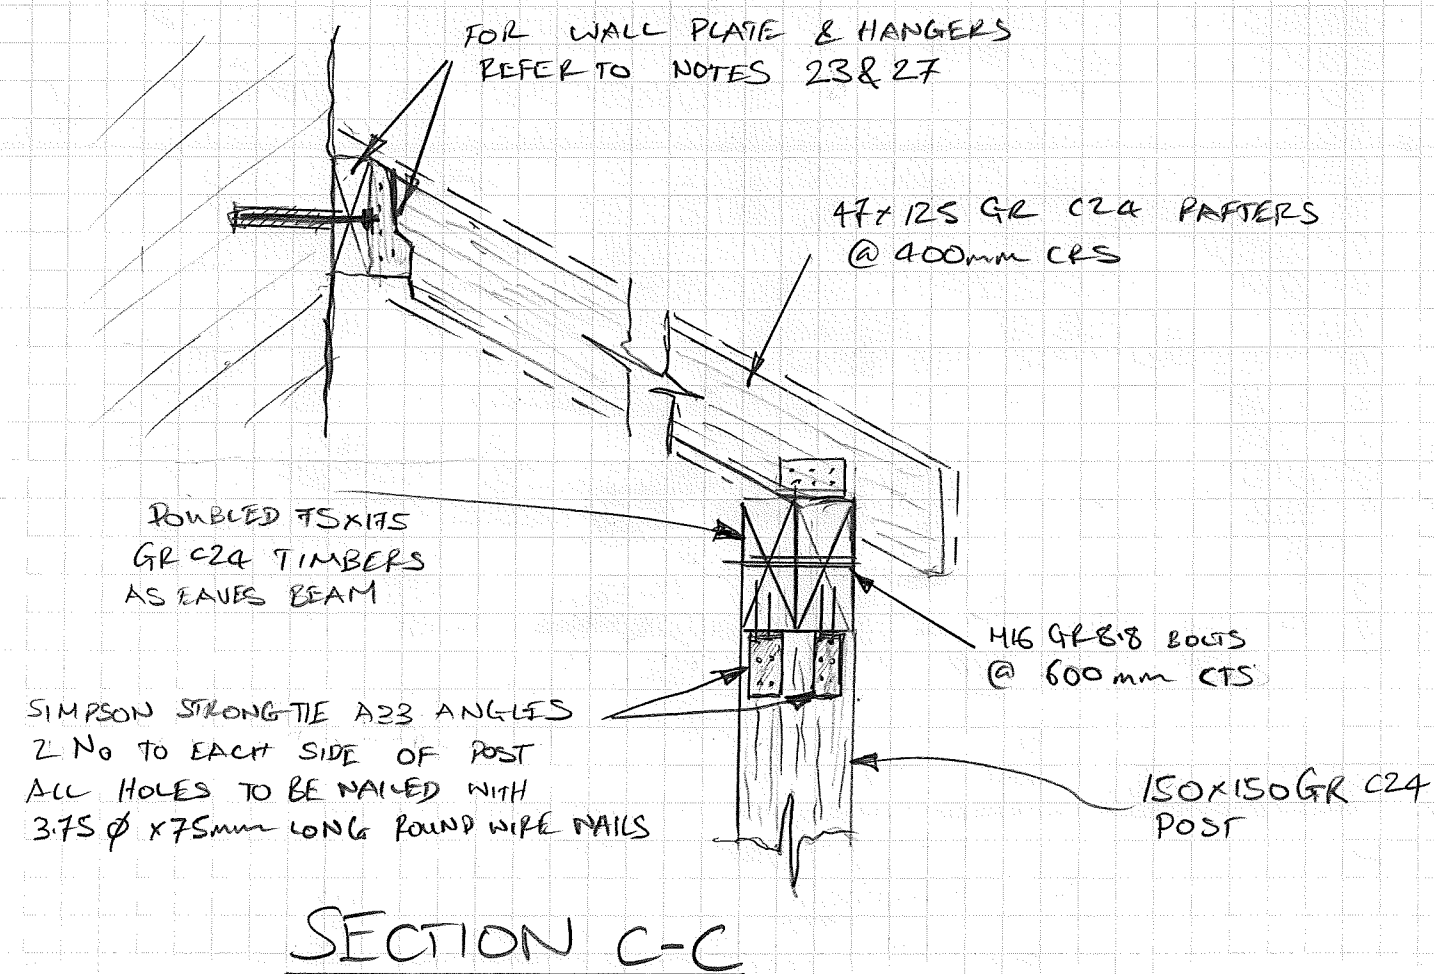 FOR WALL PLATE & HANGERS
REFER TO NOTES 23 & 27
47 x 125 GR C24 RAFTERS
@ 400mm CRS
DOUBLED 75x175
GR C24 TIMBERS
AS EAVES BEAM
M16 GR 8.8 BOLTS
@ 600mm CTS
SIMPSON STRONG-TIE A33 ANGLES
2 No TO EACH SIDE OF POST
ALL HOLES TO BE NAILED WITH
3.75 Ø x 75mm LONG ROUND WIRE NAILS
150x150 GR C24
POST
SECTION C-C